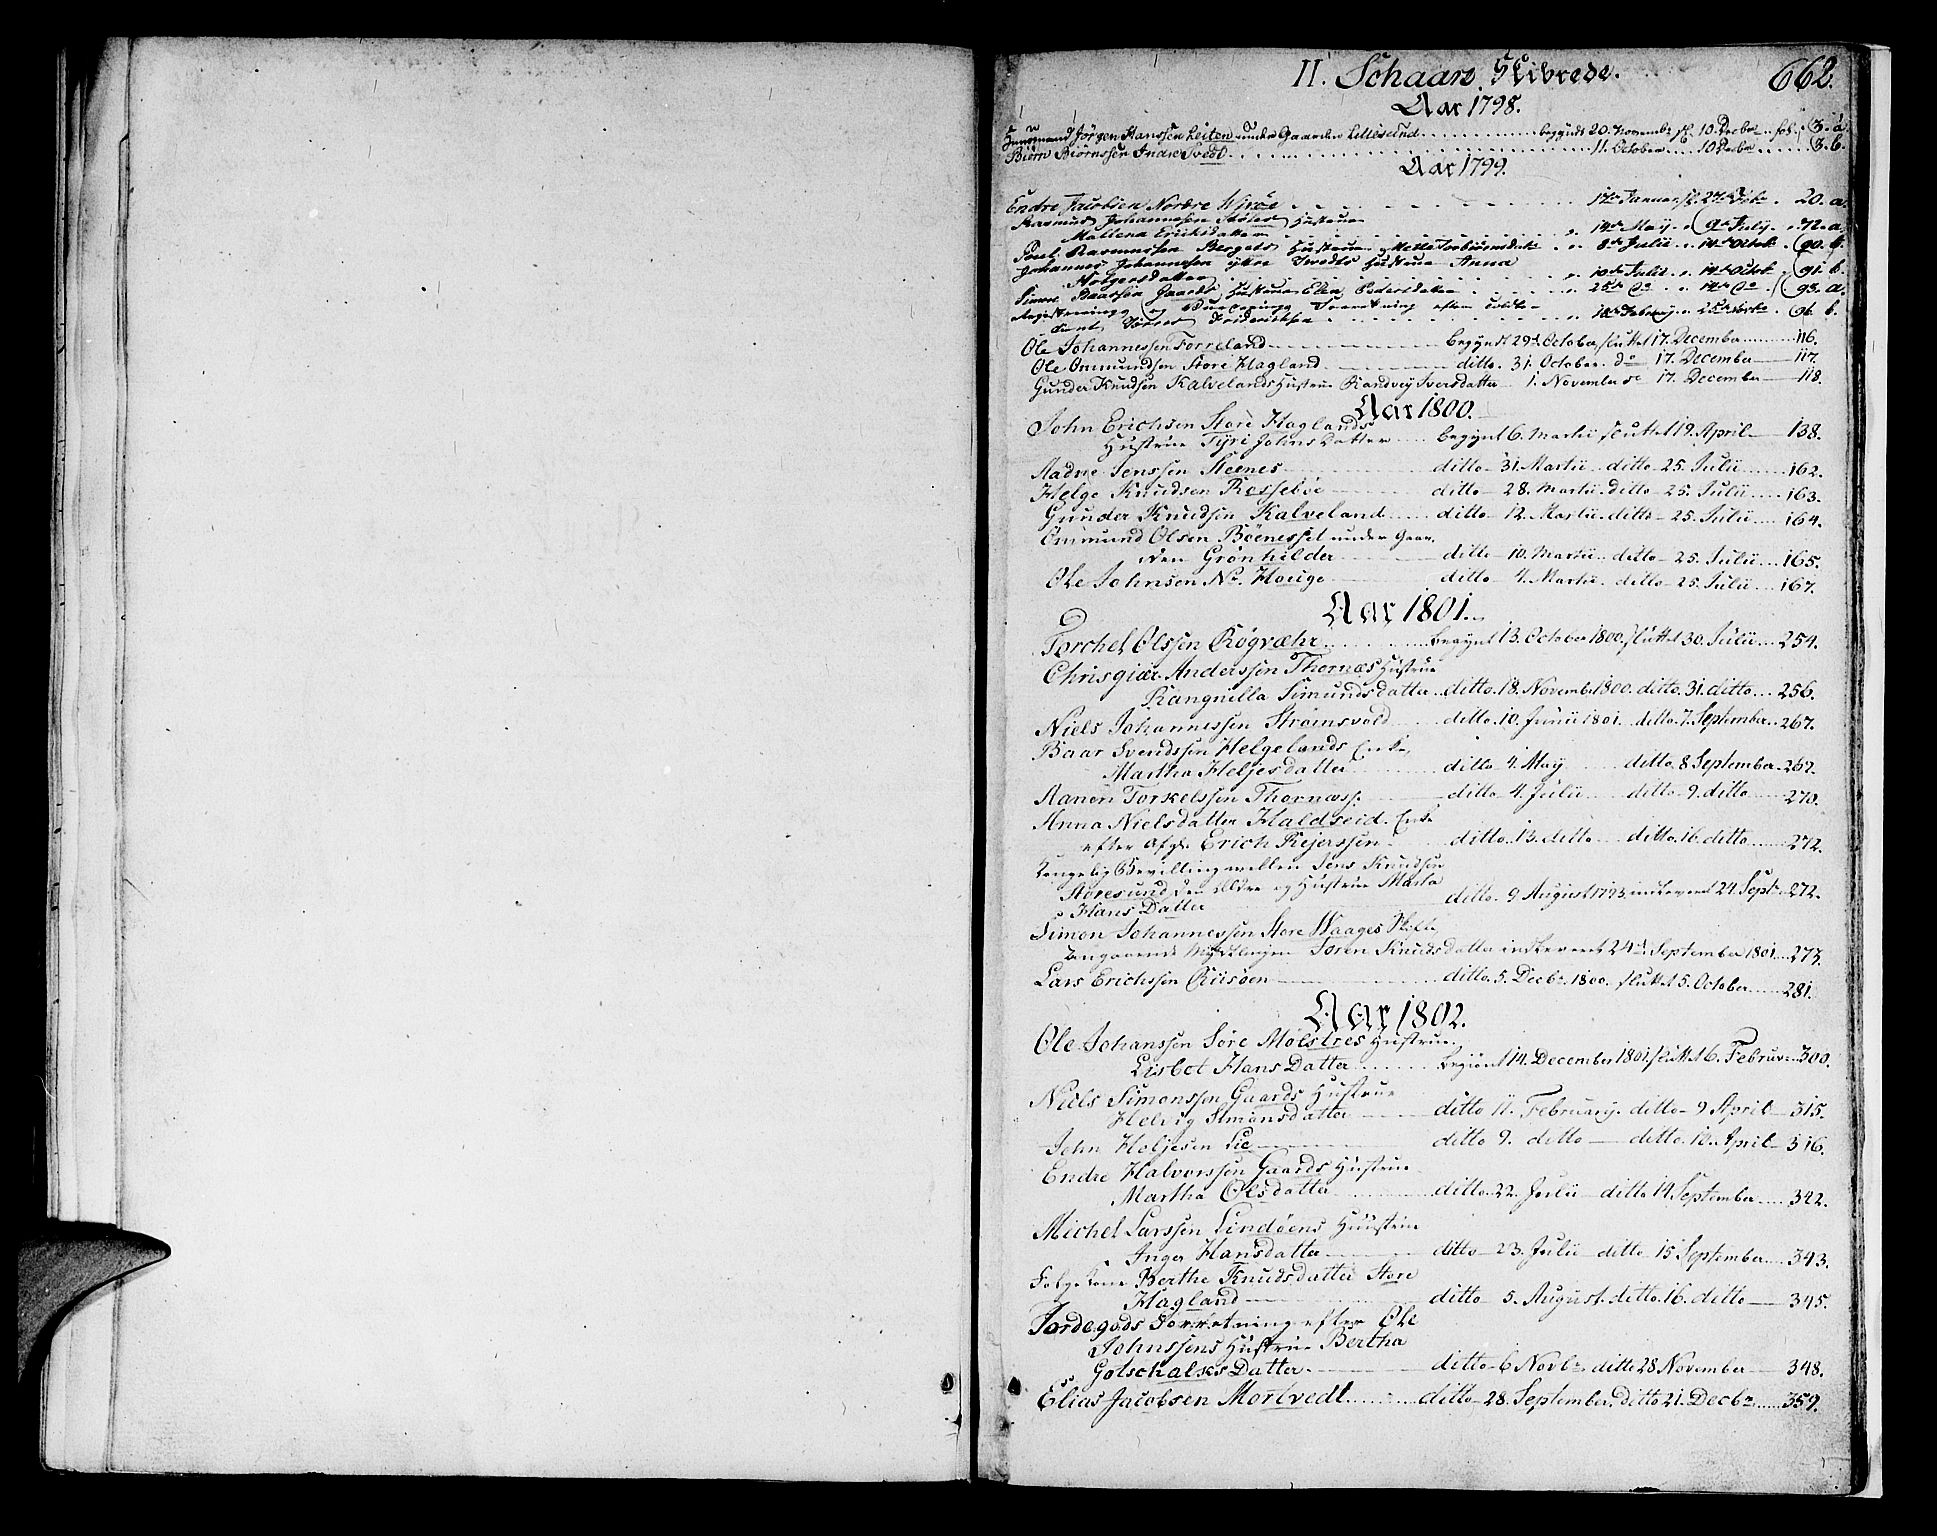 II. Schaare Skibrede. 662.
Aar 1798.
Huusmand Jörgen Hanssen Leiten under Gaarden Lillesund begyndt 20. Novembr sl. 10. Decbr fol. 3. a.
Biørn Biørnssen Indre Svedt 11. October 10 Decbr 3. b.
Aar 1799.
Endre Jacobsen Nordre Wiröe 17de Januar sl. 27de 20. a.
Rasmus Johannessen Hustrue
Mallena Eriksdatter 14de May 9de July 72. a.
Poul Rasmussen Hustrue Mette 8de Julii 14de Octob. 90. b.
Johannes Johannesen yttre Svedts Hustrue Anna
Holgersdatter 10de Julii 14de Octob. 91. b.
Simon Baarssen Gaards Hustrue Elen Pedersdatter 25de do 14de do 93. a.
Registrering og Vurderings Forretning efter
Friderichsen 18de February 25de 96. b.
Ole Johannessen Forreland begyndt 29d. October sluttet 17. December 116.
Ole Ommundsen Store Hagland ditto 31. October. do 17. December 117.
Gunder Knudsen Kalvelands Hustrue Randvey Iversdatter 1. November do 17. December 118.
Aar 1800.
John Erichsen Store Haglands
Hustrue Tyri Johns Datter begynt 6. Martii sluttet 19. April 138.
Aadne Jenssen Steenes ditto 31. Martii ditto 25. Julii 162.
Helge Knudsen Rossebøe ditto 28. Martii. ditto 25. Julii 163.
Gunder Knudsen Kalveland ditto 12. Martii. ditto 25. Julii 164.
Ommund Olsen Böenesset under Gaar,
den Grönhilder ditto 10. Martii ditto 25. Julii 165.
Ole Johnsen No. Houge ditto 4. Martii. ditto 25. Julii 167.
Aar 1801.
Torchel Olssen Røgvæhr begynt 13. October 1800. sluttet 30. Julii 254.
Chrisgiær Anderssen Thornæs Hustrue
Rangnilla Simundsdatter ditto 18. Novembr 1800. ditto. 31. ditto 256.
Niels Johannessen Strömsvold ditto. 10. Junii 1801. ditto. 7. September 267.
Baar Svendssen Helgelands Enke,
Martha Heljesdatter ditto 4. May ditto 8 September 269.
Aanen Torkelssen Thornæss. ditto 4. Julii ditto 9. ditto 270.
Anna Nielsdatter Haldseid. Enke
efter Afgl. Erich Rejerssen ditto. 13. ditto ditto. 16. ditto 272.
Kongelig Bevilling mellem Jens Knudsen
Storesund den Ældre og Hustrue Marta
Hans Datter ditto. 9 August 1793. indleveret 24. Septr 272.
Simon Johannessen Store Waages Skifte,
angaaende Myndlingen Soren Knudsdatter indleveret 24d. September 1801. 273.
Lars Erichssen Riisöen ditto. 5. Decbr 1800. sluttet 5. October 281.
Aar 1802.
Ole Johanssen Sore Mölstres Hustrue
Lisbet Hans Datter begiönt 14. December 1801. sluttet 6. Februar 300.
Niels Simonssen Gaards Hustrue
Helvig Simonsdatter ditto 11. February. ditto 9 April 315.
John Heljesen Lie ditto 9. ditto ditto. 10. April 316.
Endre Halvorssen Gaards Hustrue
Martha Olsdatter ditto. 22. Julii ditto 14 September 342.
Michel Larssen Lindöens Huustrue
Inger Hansdatter ditto 23. Julii ditto 15 September 343.
Folgekone Berthe Knudsdatter Store
Hagland ditto 5. August. ditto. 16. ditto 345.
Jordegods Forretning efter Ole
Johnssens Hustrue Bertha
Gotschalks Datter ditto 6 Novbr ditto 28 November 348.
Elias Jacobsen Mortvedt ditto 28. September. ditto 21. Decbr 359.